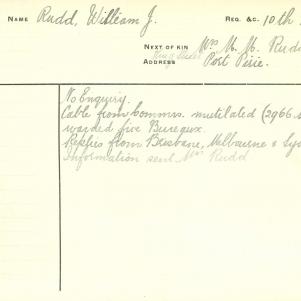 NAME Rudd, William J. REG. &C. 10th
NEXT OF KIN Mrs M. M. Rudd
ADDRESS Port Pirie.
No Enquiry.
Cable from Commrs. mutilated (2966
warded five Bureaux.
Replies from Brisbane, Melbourne & Syd
Information sent Mrs Rudd